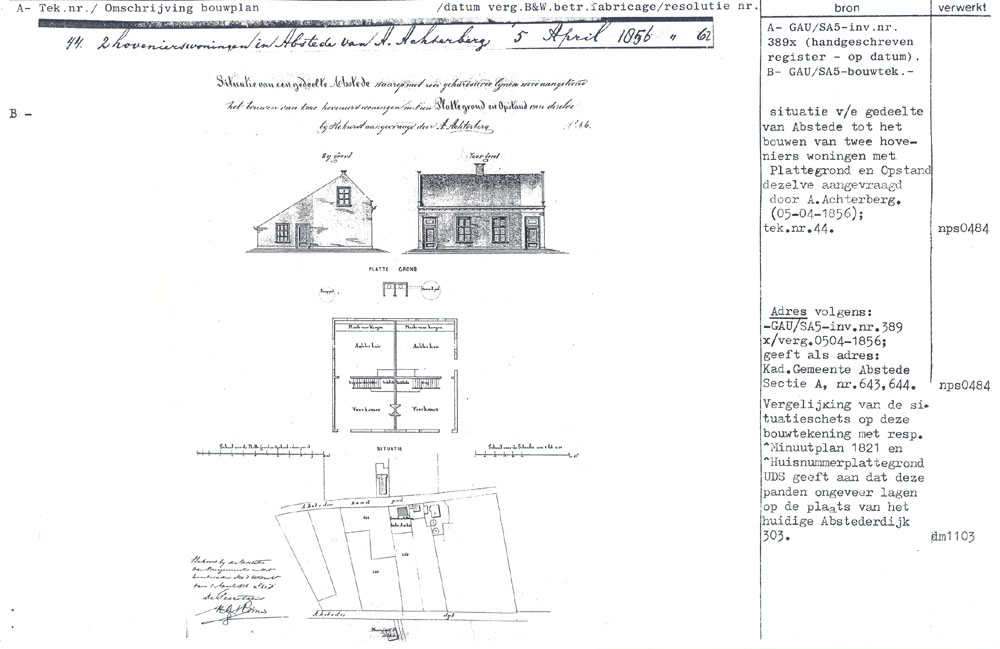 A- Tek.nr./ Omschrijving bouwplan /datum verg.B&W.betr.fabricage/resolutie nr. bron verwerkt
44. 2 hovenierswoningen in Abstede van A. Achterberg 5 April 1856 " 62
A- GAU/SA5-inv.nr.
389x (handgeschreven
register - op datum).
B- GAU/SA5-bouwtek.-
Situatie van een gedeelte Abstede waarop met roode gekarseerde lijnen word aangetoond
het bouwen van twee hovenierswoningen met een Platte grond en Opstand van dezelve
bij Rekwest aangevraagd door A. Achterberg.
B -
situatie v/e gedeelte
van Abstede tot het
bouwen van twee hove-
niers woningen met
Plattegrond en Opstand
dezelve aangevraagd
door A.Achterberg.
(05-04-1856);
tek.nr.44. nps0484
Zy gevel Voor gevel
PLATTE GROND
Achter huis Achter huis
Voorkamer Voorkamer
Adres volgens:
-GAU/SA5-inv.nr.389
x/verg.0504-1856;
geeft als adres:
Kad.Gemeente Abstede
Sectie A, nr.643,644. nps0484
Vergelijking van de si-
tuatieschets op deze
bouwtekening met resp.
^Minuutplan 1821 en
^Huisnummerplattegrond
UDS geeft aan dat deze
panden ongeveer lagen
op de plaats van het
huidige Abstederdijk
303. dm1103
SITUATIE
Abstedes Zand pad
De Secretaris
Abstedes dyk